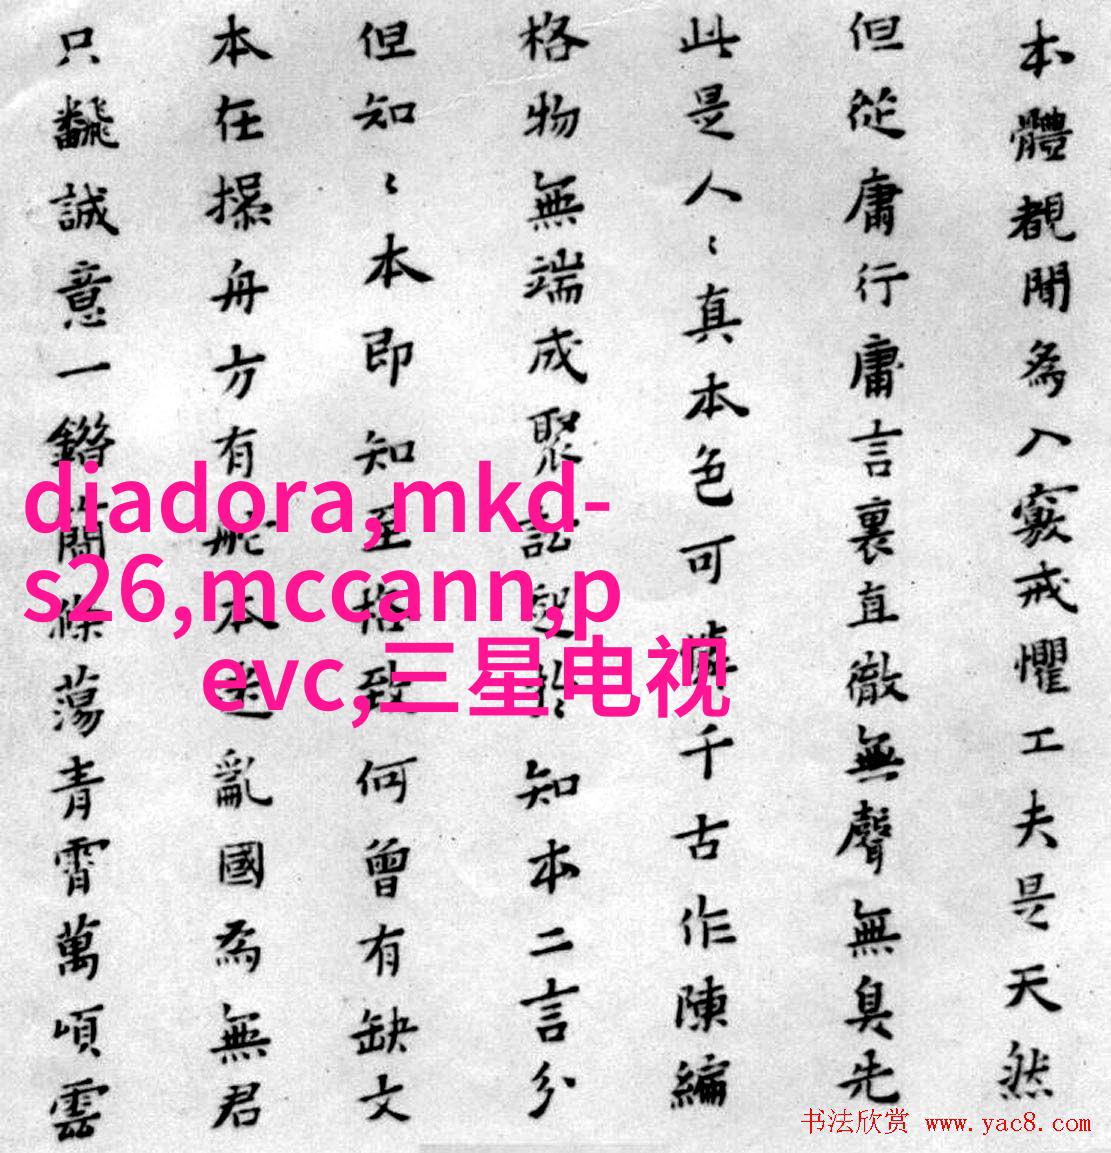 本體覩聞為入竅戒懼工夫是天然
但從庸行庸言裏直徹無聲無臭先
此是人〻真本色可千古作陳編
格物無端成聚訟起於知本二言分
但知〻本即知至格致何曾有缺文
本在操舟方有舵本迷亂國為無君
只飜誠意一滌蕩青霄萬頃雲
diadora,mkd-
s26,mccann,p
evc,三星电视
书法欣赏 www.yac8.com